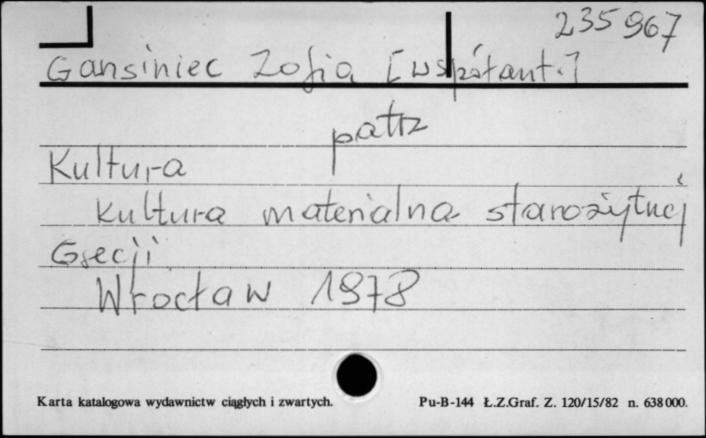 235967
Gansiniec Zofia [współaut.]
patrz
Kultura
Kultura materialna starożytnej
Grecji
Wrocław 1978
Karta katalogowa wydawnictw ciągłych i zwartych.
Pu-B-144 Ł.Z.Graf. Z. 120/15/82 n. 638000.